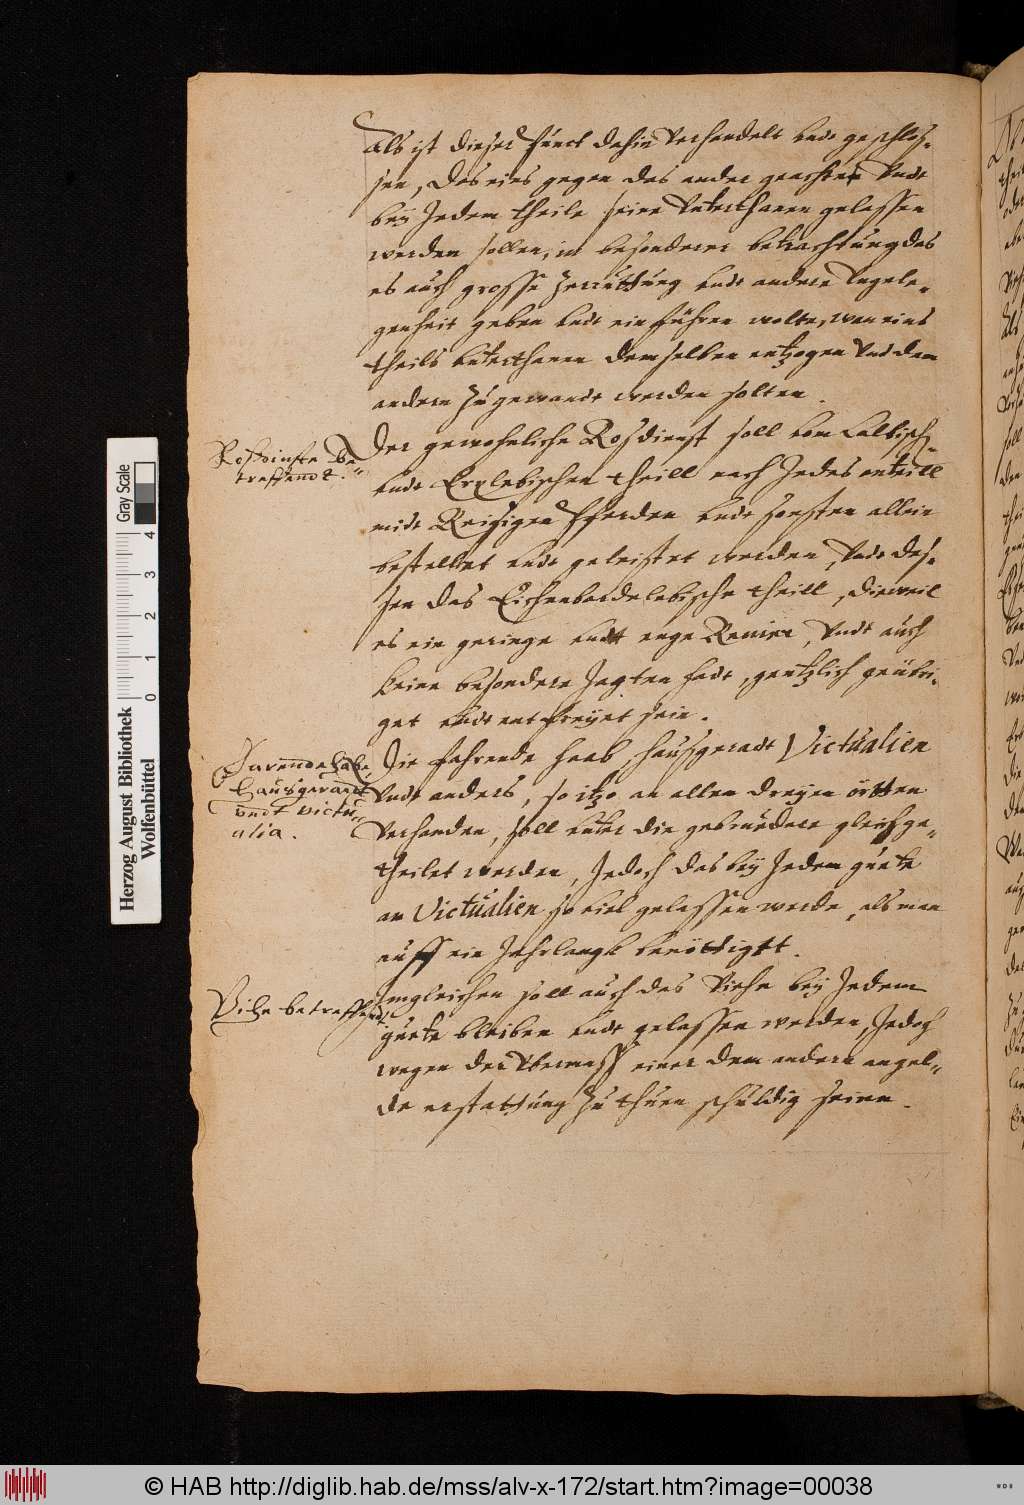 Als ist dieser Punct dahin verhandelt vndt geschlos-
sen, das eins gegen das ander geachtet vndt
bey Jedem theile seine Vnterthanen gelassen
werden sollen, in besonderer betrachtung das
es auch grosse zerruttung vndt andere Vngele-
genheit geben vndt einführen wolte, wan eins
theils vnterthanen demselben entzogen vnd dem
andern zugewandt werden solten.
Roßdinste be-
treffendt.
Der gewohnliche Rosdienst soll vom Calbisch-
vndt Erxlebischen theill nach Jedes anteill
midt Reisigen Pferden vndt sonsten allein
bestellet vndt geleistet werden, Vndt des-
sen das Eichenbardelebische theill, dieweil
es ein geringe vndt enge Revier, vndt auch
keine besondere Jagten hadt, gentzlich geübri-
get vndt entfreyet sein.
Farende habe,
Hausgeradt
vndt victu-
alia.
Die fahrende haab, hausgeradt Victualien
Vndt anders, so itzo an allen dreyen örtten
verhanden, soll vnter die gebruedere gleich ge-
theilet werden, Jedoch das bey Jedem guete
an Victualien so viel gelassen werde, als man
auff ein Jahrlangk benöttigtt.
Vihe betreffendt
Imgleichen soll auch das Viehe bey Jedem
guete bleiben vndt gelassen werden, Jedoch
wegen der Vbermass einer dem andern an gel-
de erstattung zu thuen schuldig seinn.
Herzog August Bibliothek
Wolfenbüttel
Gray Scale
0 1 2 3 4
© HAB http://diglib.hab.de/mss/alv-x-172/start.htm?image=00038